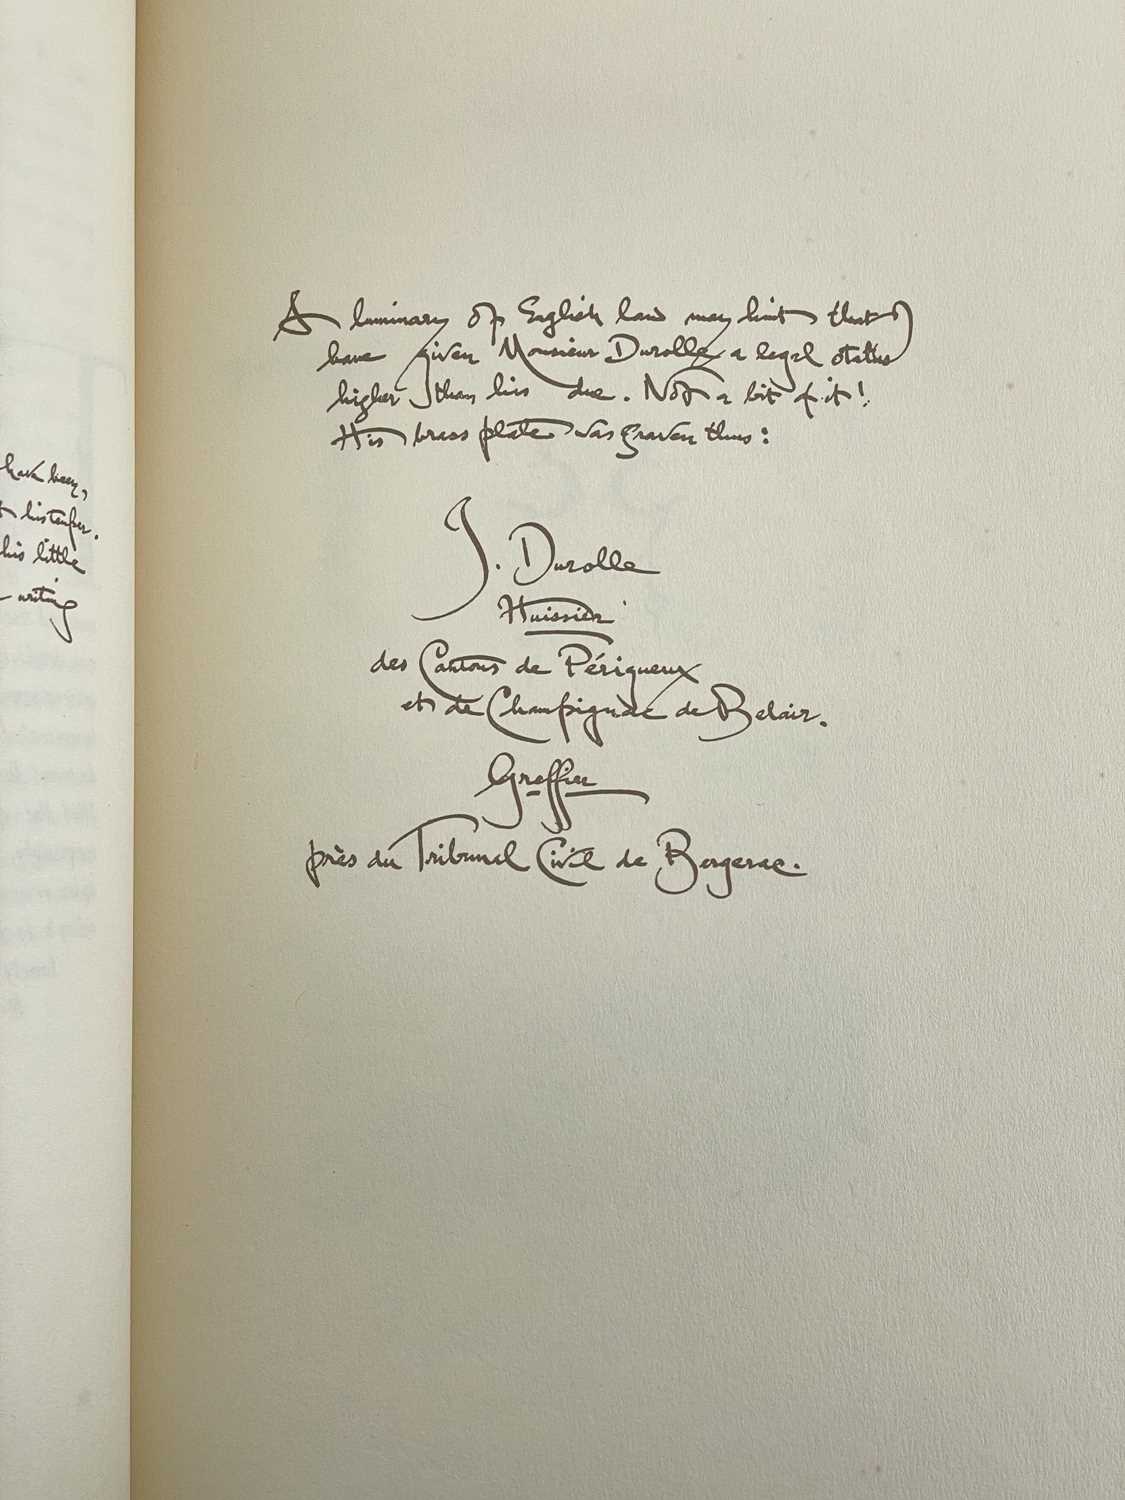 have been,
his temper.
his little
writing
A luminary of English law may hint that I
have given Monsieur Durolle a legal status
higher than his due. Not a bit of it!
His brass plate was graven thus:
J. Durolle
Huissier
des Cantons de Périgueux
et de Champignac de Belair.
Greffier
près du Tribunal Civil de Bergerac.